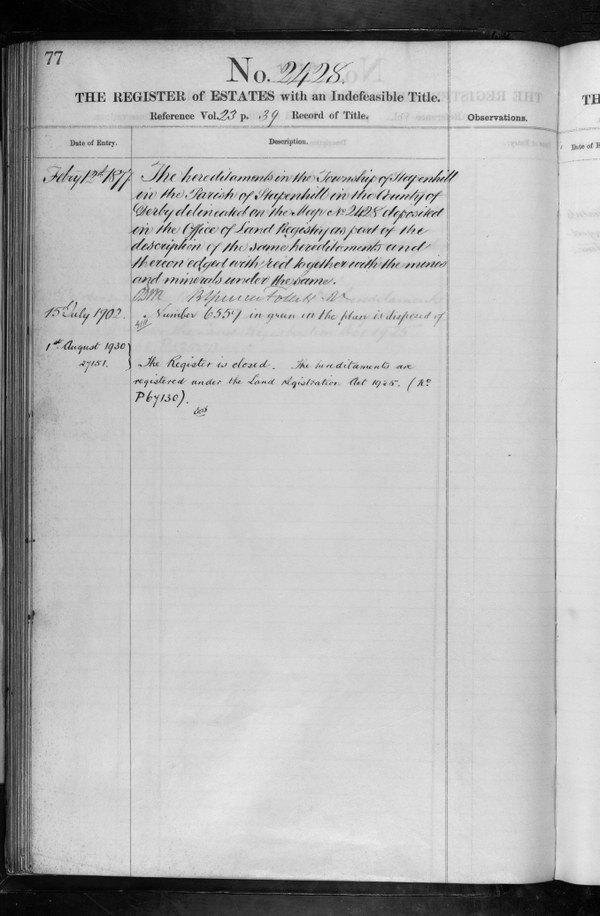 77
No. 2428.
THE REGISTER of ESTATES with an Indefeasible Title.
Reference Vol. 23 p. 39 Record of Title.
Observations.
Date of Entry.
Description.
Feby 12th 1877
The hereditaments in the Township of Stapenhill
in the Parish of Stapenhill in the County of
Derby delineated on the Map No 2428 deposited
in the Office of Land Registry as part of the
description of the same hereditaments and
thereon edged with red together with the mines
and minerals under the same.
Spencer Follett
15th July 1902.
Number 6557 in green on the plan is disposed of
1st August 1930
27151.
The Register is closed. The hereditaments are
registered under the Land Registration Act 1925. (No
P67130).
TH
Date of E